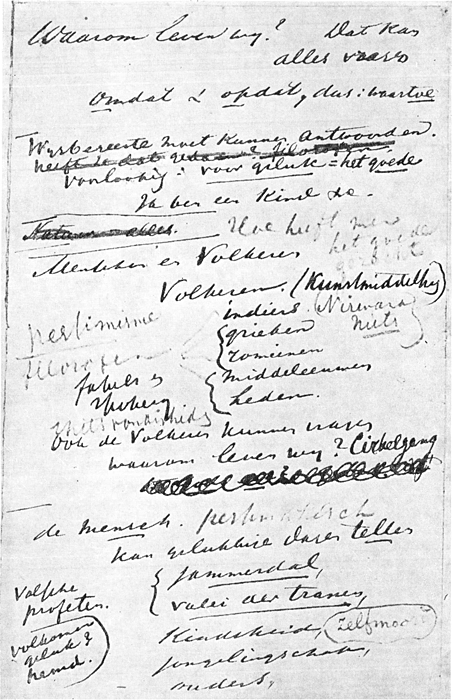 Waarom leven wij? Dat kan
alles vaars
omdat & opdat, dus: waartoe
Wijsbegeerte moet kunnen antwoorden.
heeft ze dat gedaan? filosofen.
voorloopig: voor geluk = het goede
Ik ben een kind &c.
Natuur = alles. Hoe heeft men
het goede
gezocht
Menschen en Volkeren
Volkeren. (Kunstmiddeltjes)
indiers (Nirwana
niets)
pessimisme
grieken
filosofen
romeinen
fabels en
middeleeuwen
heden.
Ook de Volkeren kunnen vragen
waarom leven wij? Cirkelgang
de mensch. pessimistisch
kan gelukkige dagen tellen
jammerdal,
Valsche
profeten.
vallei der tranen,
volkomen
geluk &
hemel.
Kindsheid, Zelfmoord
jongelingschap,
ouders,